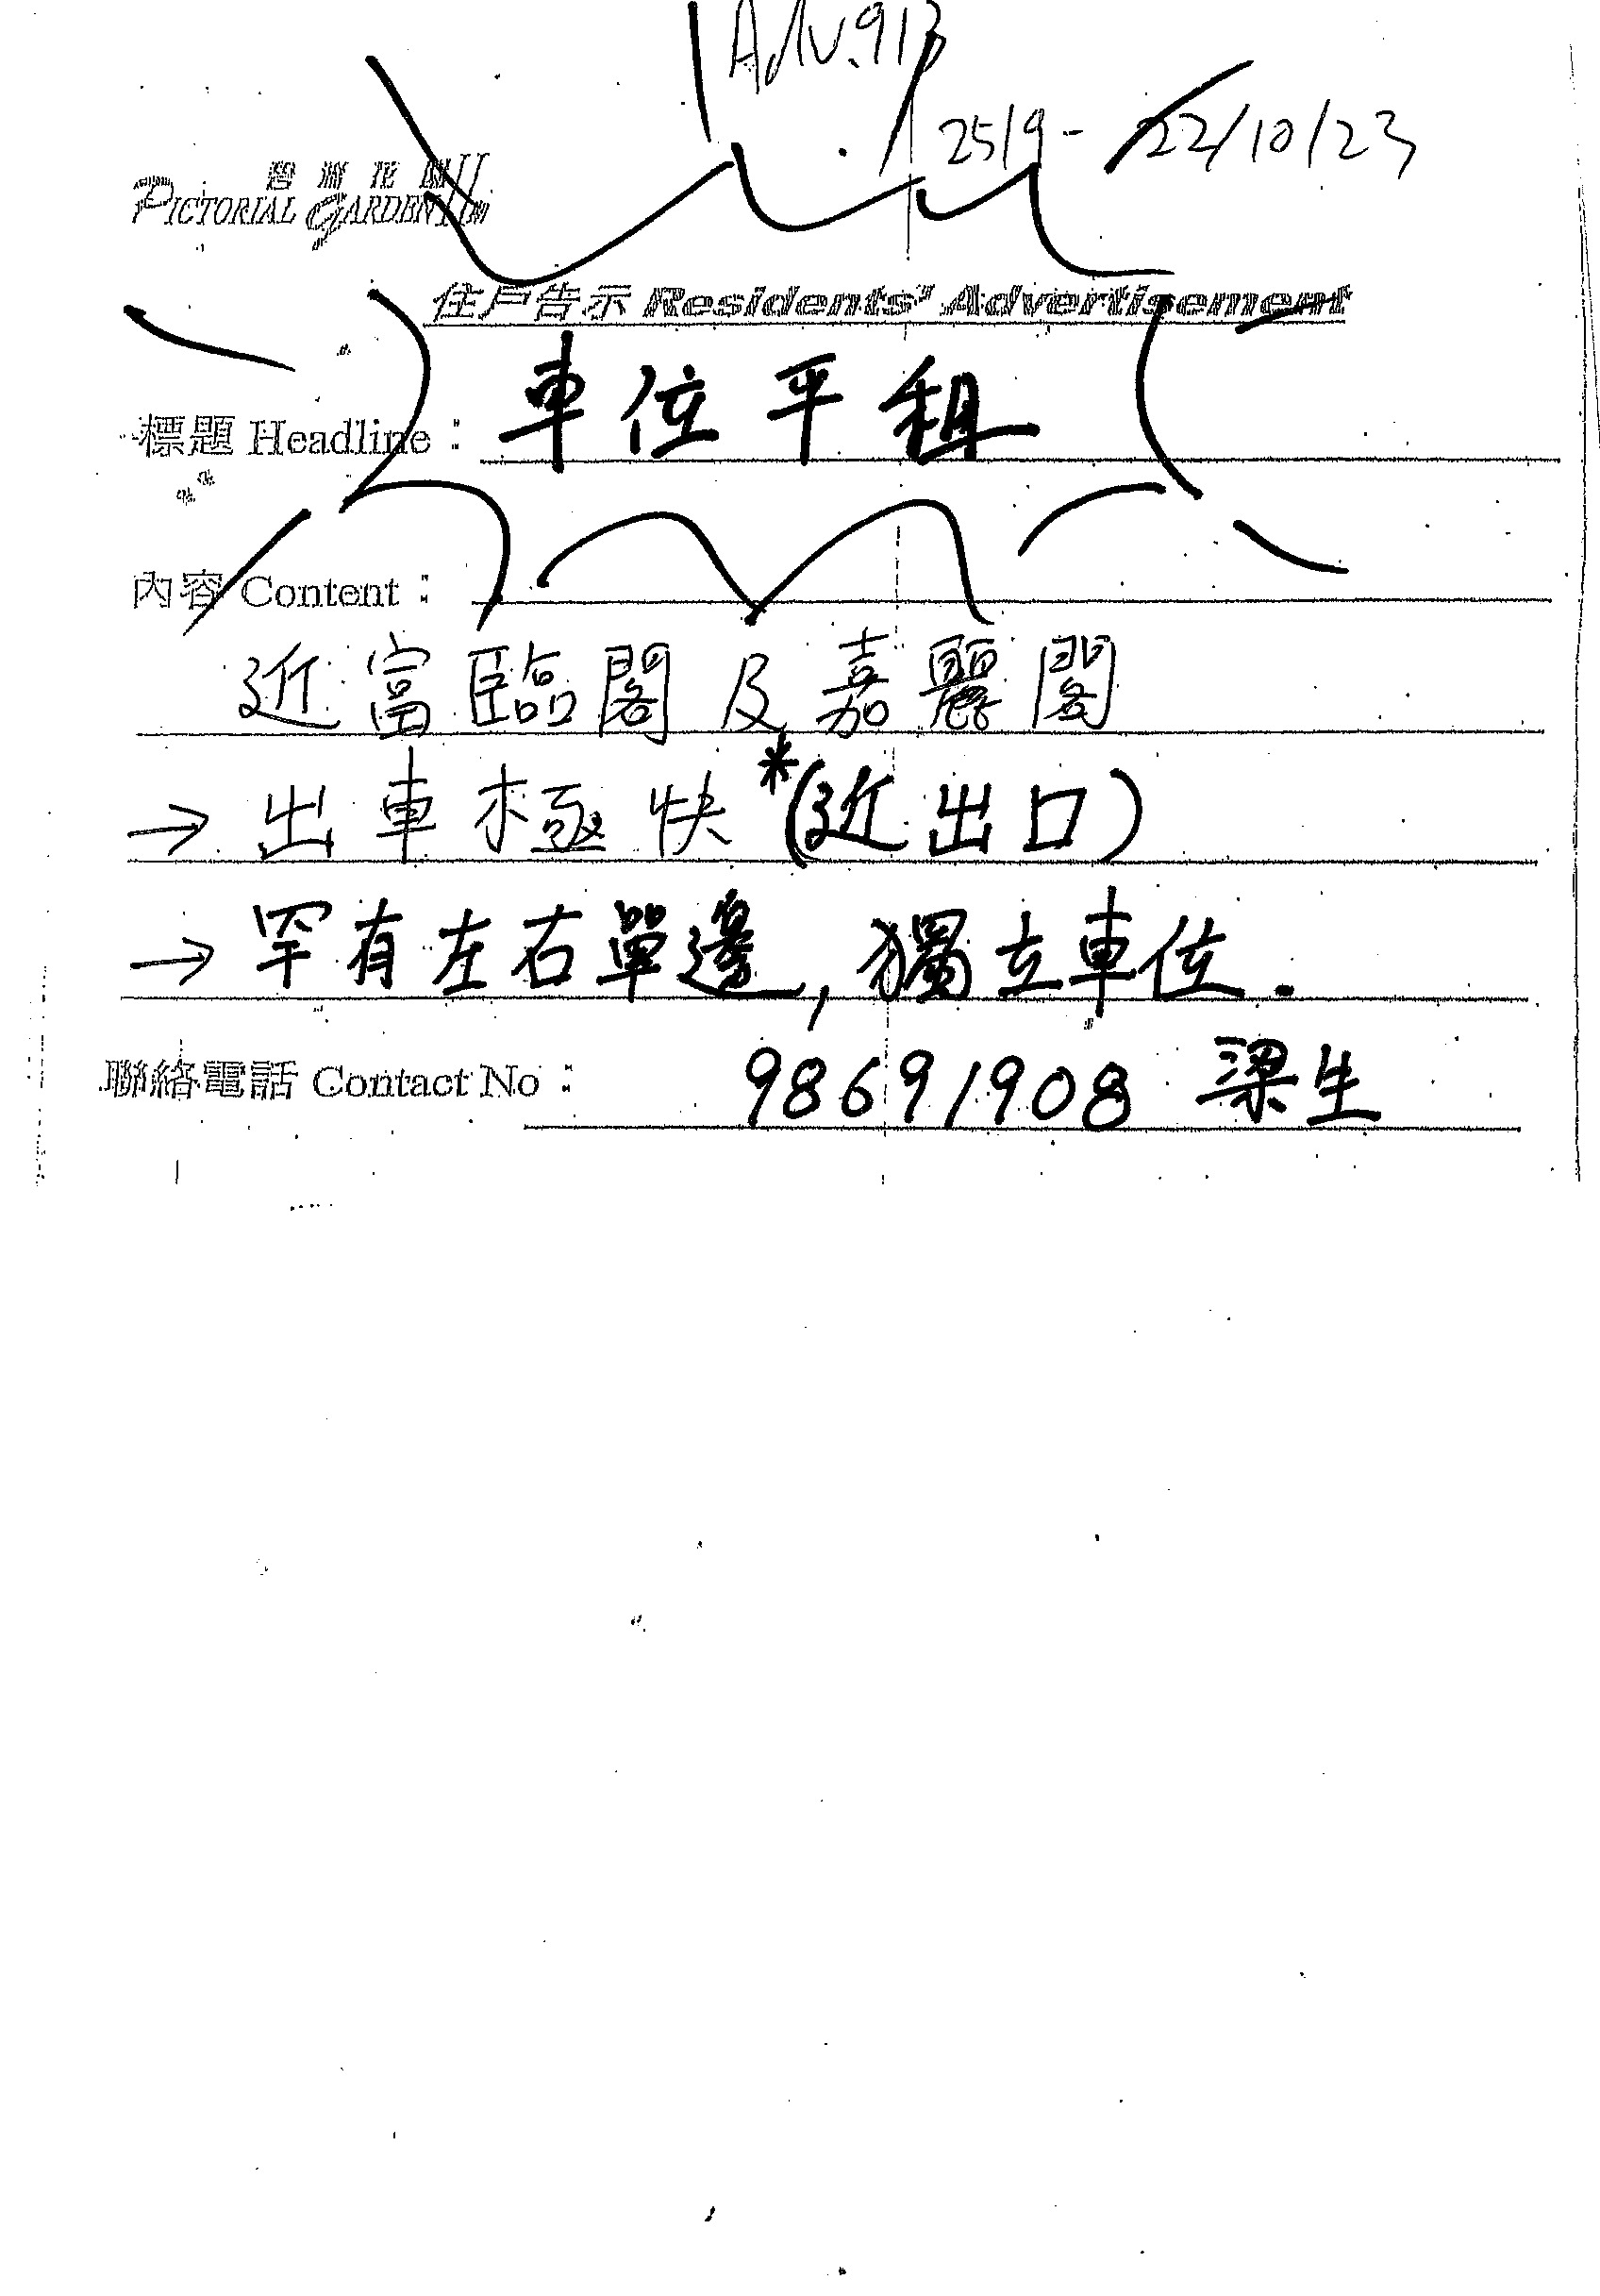 Adv.913
25/9 - 22/10/23
碧濤花園II
PICTORIAL GARDEN II
住戶告示 Residents' Advertisement
標題 Headline： 車位平租
內容 Content：
近富臨閣及嘉麗閣
→ 出車極快*(近出口)
→ 罕有左右單邊, 獨立車位.
聯絡電話 Contact No： 98691908 梁生